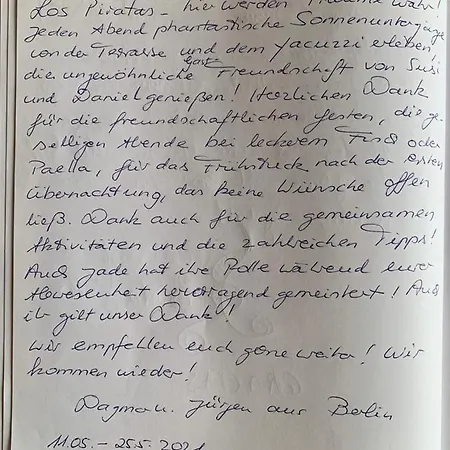 Los Piratas - hier werden Träume wahr!
Jeden Abend phantastische Sonnenuntergänge
von der Terrasse und dem Jacuzzi erleben,
die ungewöhnliche Gast
Freundschaft von Susi
und Daniel genießen! Herzlichen Dank
für die freundschaftlichen Gesten, die ge-
selligen Abende bei leckerem Fisch oder
Paella, für das Frühstück nach der ersten
Übernachtung, das keine Wünsche offen
ließ. Dank auch für die gemeinsamen
Aktivitäten und die zahlreichen Tipps!
Auch Jade hat ihre Rolle während eurer
Abwesenheit hervorragend gemeistert! Auch
ihr gilt unser Dank!
Wir empfehlen euch gerne weiter! Wir
kommen wieder!
Dagma u. Jürgen aus Berlin
11.05. - 25.5. 2021